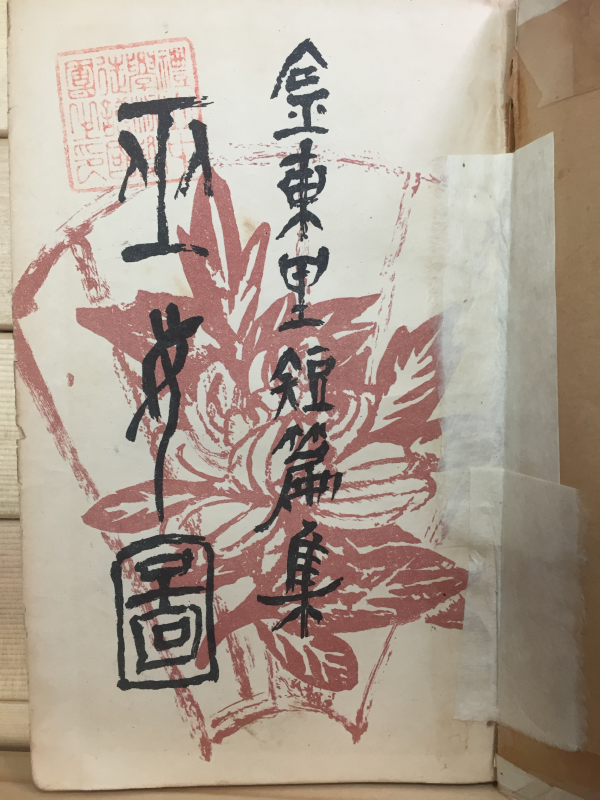 金東里短篇集
巫女圖